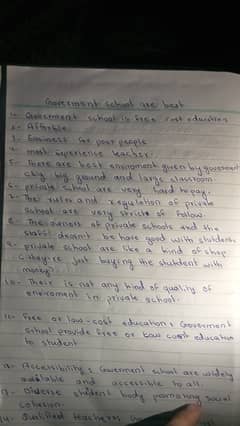 Goverment school are best
1- Goverment school is free cost education
2- Afforible
3- Easiness for poor people
4- most Experience teacher.
5- There are best enviroment given by goverment
by big ground and large classroom
6- private school are very hard to pay.
7- The rules and regulation of private
school are very stricts to follow.
8- The owners of private schools and the
staff doesn't be have good with students.
9- private school are like a kind of shop
They're just buying the student with
money?
10- Their is not any kind of quality of
enviroment in private school.
11- Free or low-cost education: Goverment
school provide free or low cost education
to student
12- Accessibility: Goverment school are widely
available and accessible to all.
13- Diverse student body promoting social
cohesion.
14- Qualified teachers